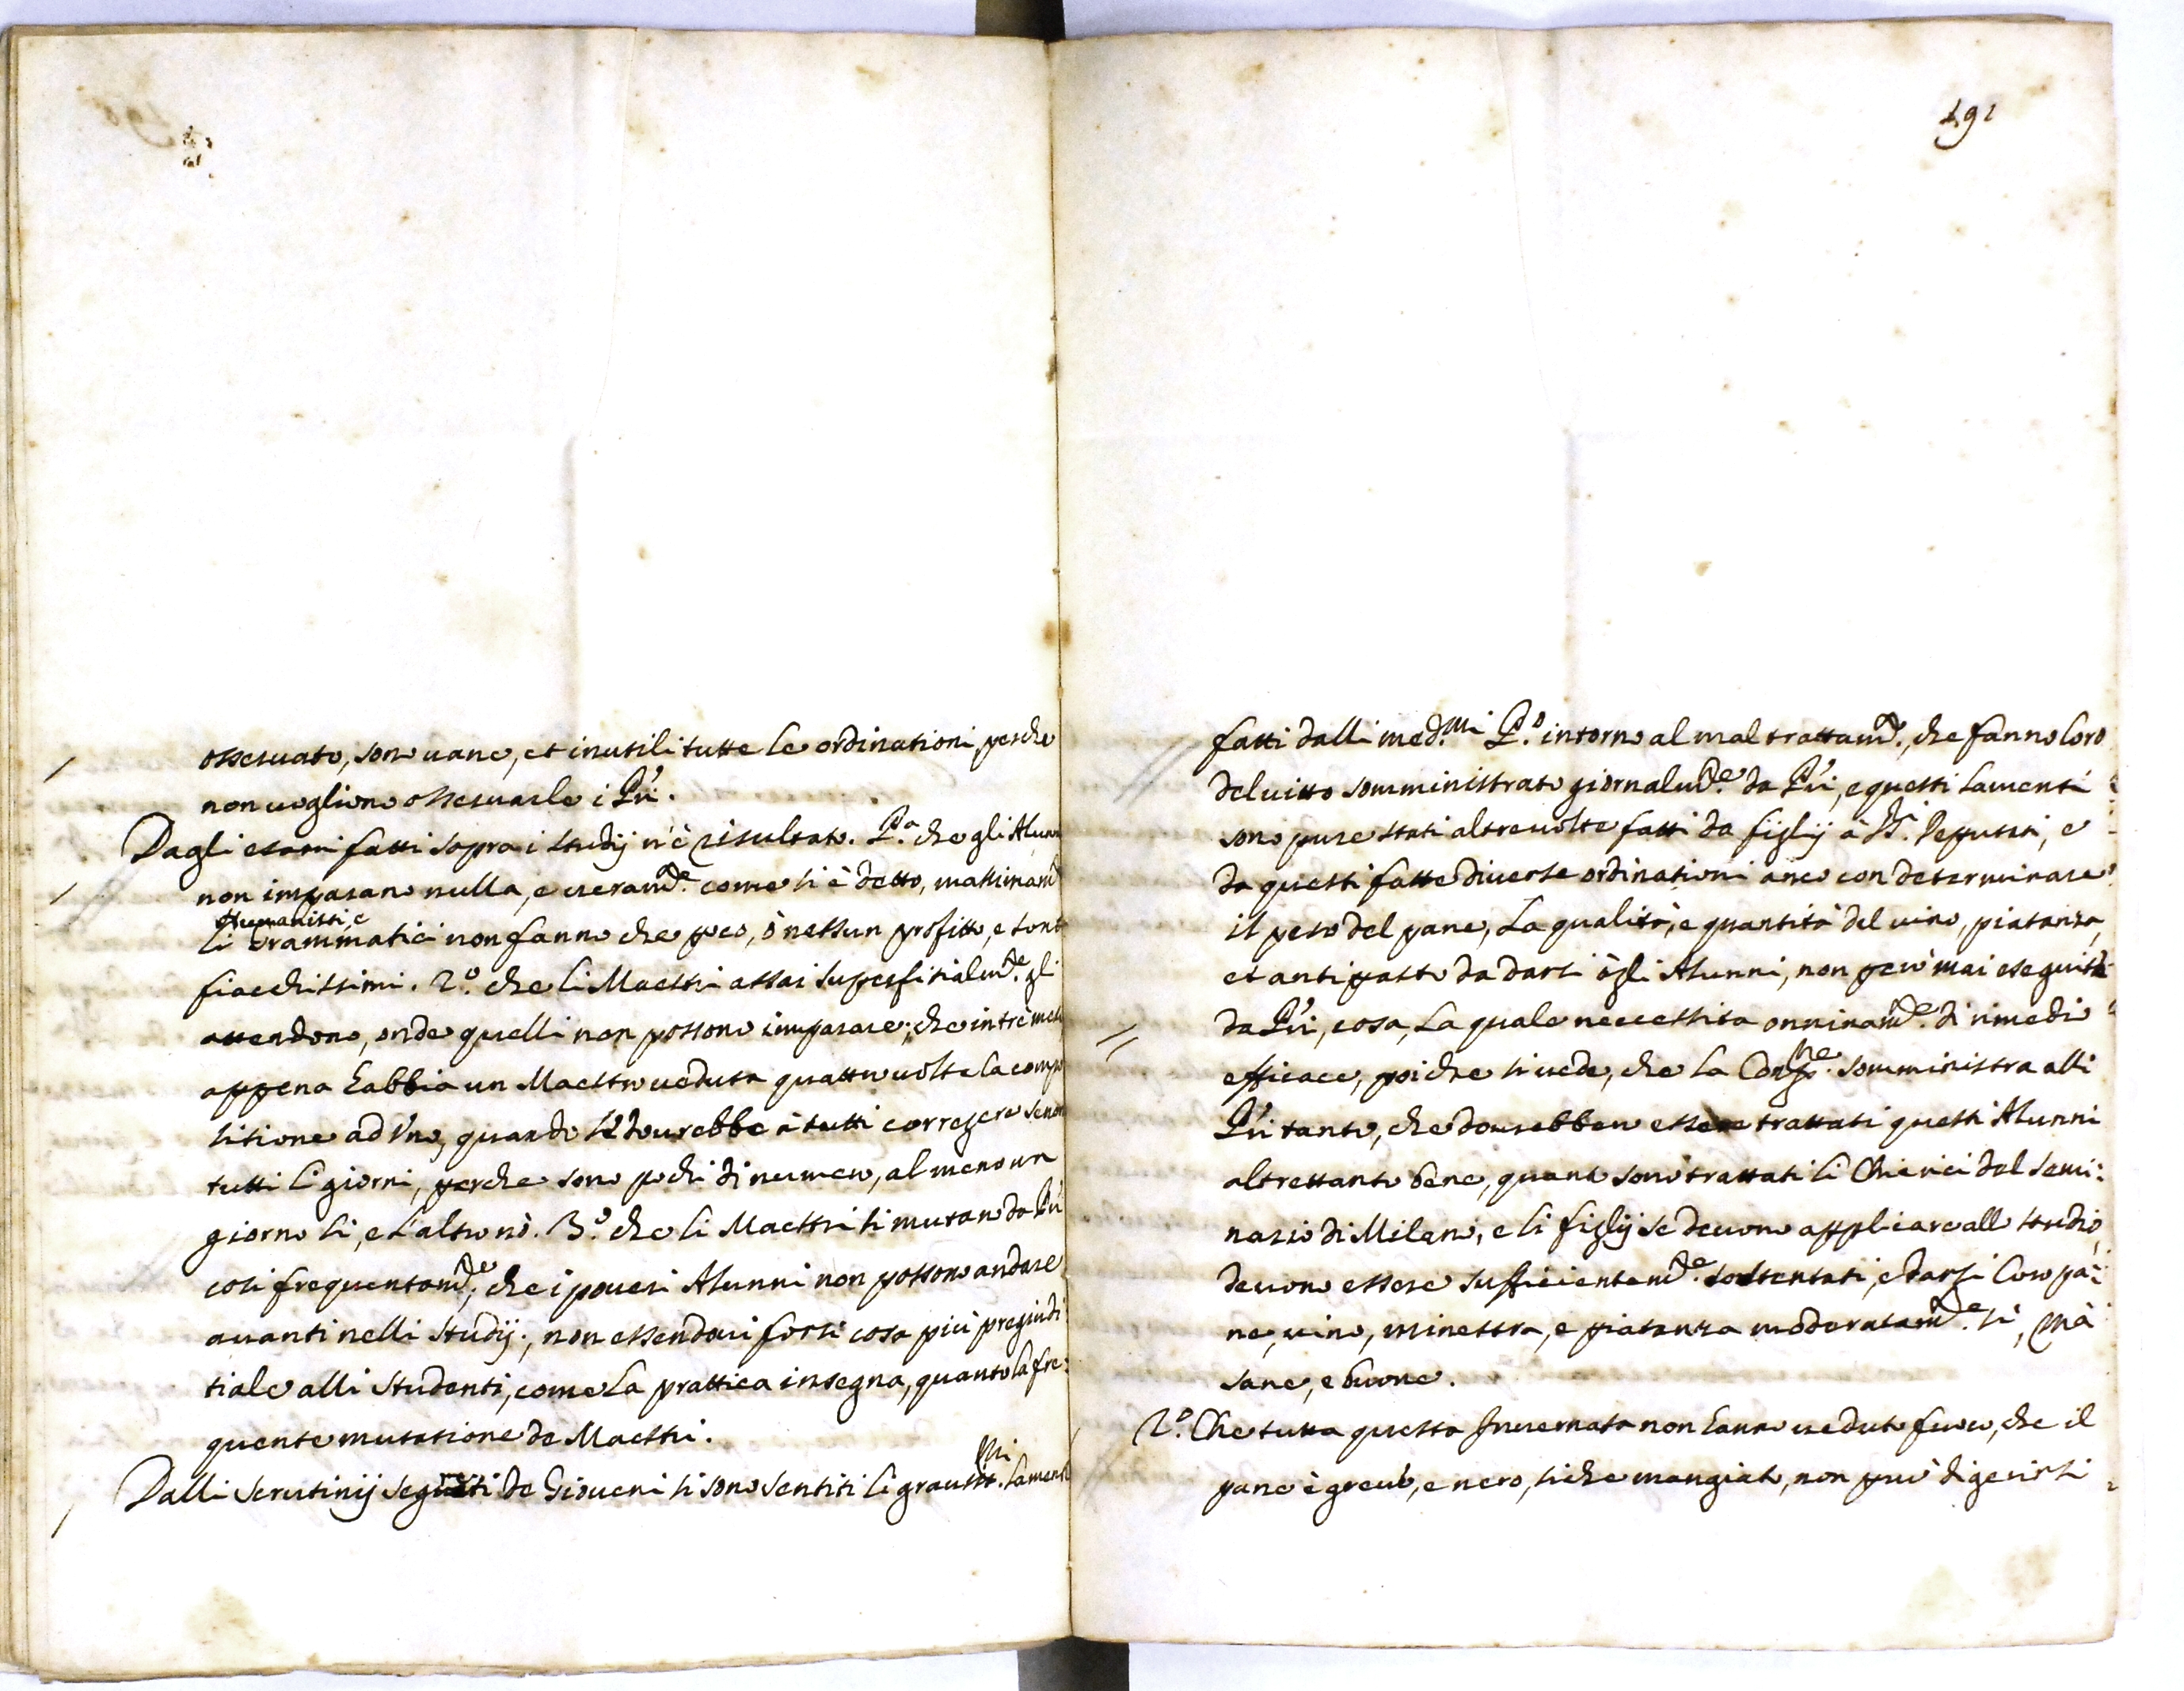 osseruato, sono uane, et inutili tutte le ordinationi, perche
non uogliono osseruarle i PPri.
Dagli esami fatti sopra i studij n'è risultato. P.a che gli Alunni
non imparano nulla, e ueram.te come si è detto, massimam.te
Humanisti, e
li Grammatici non fanno che poco, ò nessun profitto, e sono
fiacchissimi. 2.o che li Maestri assai superfitialm.te gli
attendono, onde quelli non possono imparare; che in trè mesi
appena habbia un Maestro veduta quattro uolte la compo
sitione ad Vno, quando si dourebbe à tutti correggere se non
tutti li giorni, perche sono pochi di numero, al meno un
giorno si, e l'altro nò. 3.o che li Maestri si mutano da PPri
così frequentem.te, che i poueri Alunni non possono andare
auanti nelli studij; non essendoui forsi cosa più pregiudi
tiale alli studenti, come la prattica insegna, quanto la fre:
quente mutatione de Maestri.
Dalli scrutinij seguiti de Gioueni si sono sentiti li grauiss.mi lamenti
191
fatti dalli med.mi P.o intorno al mal trattam.to, che fanno loro
del uitto somministrato giornalm.te da PPri, e questi lamenti
sono pure stati altre uolte fatti da figlij à SS.ri Deputati, e
da questi fatte diuerse ordinationi anco con determinare
il peso del pane, la qualità, e quantità del uino, piatanza,
et antipasto da darsi àgli Alunni, non però mai eseguite
da PPri, cosa, la quale neccessita onninam.te di rimedio
efficace, poiche si uede, che la Cong.ne somministra alli
PPri tanto, che dourebbero essere trattati questi Alunni
altrettanto bene, quanto sono trattati li Chierici del Semi:
nario di Milano, e li figlij se deuono applicare allo studio,
deuono essere sufficientem.te sostentati, e darsi loro pa:
ne, uino, minestra, e piatanza moderatam.te si, mà
sane, e buone.
2.o Che tutta questa Inuernata non hanno ueduto fuoco, che il
pane è greue, e nero, siche mangiato, non può digerirsi